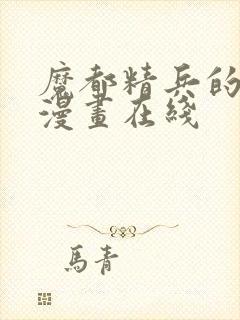 魔都精兵的
漫畫在綫
馬青